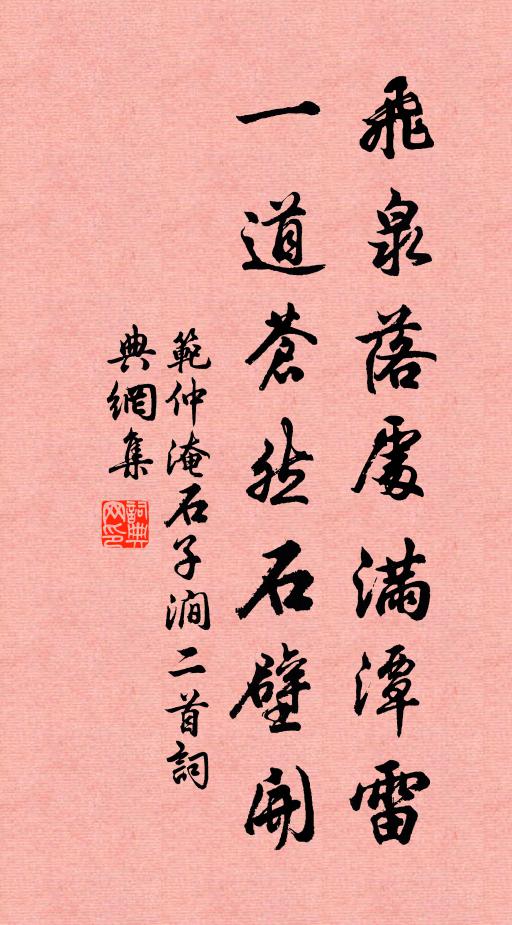 飛泉落處滿潭雷
一道蒼然石壁開
範仲淹石子澗二首詞
典網集
詞典網印